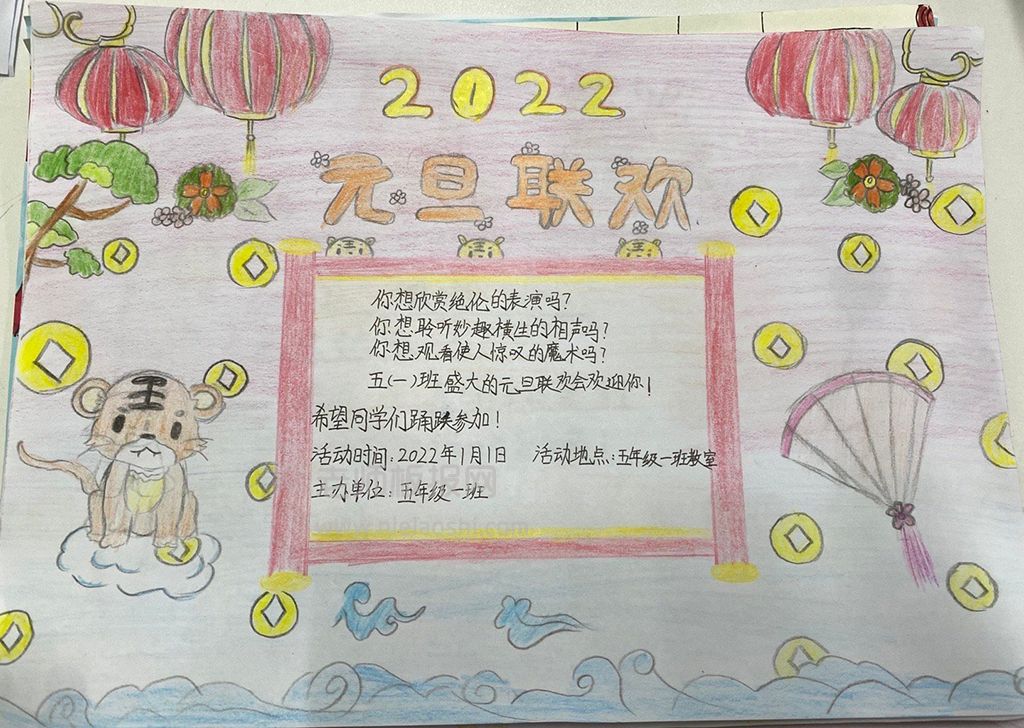 2022
元旦联欢
王
你想欣赏绝伦的表演吗?
你想聆听妙趣横生的相声吗?
你想观看使人惊叹的魔术吗?
五(一)班盛大的元旦联欢会欢迎你!
希望同学们踊跃参加!
活动时间:2022年1月1日 活动地点:五年级一班教室
主办单位:五年级一班